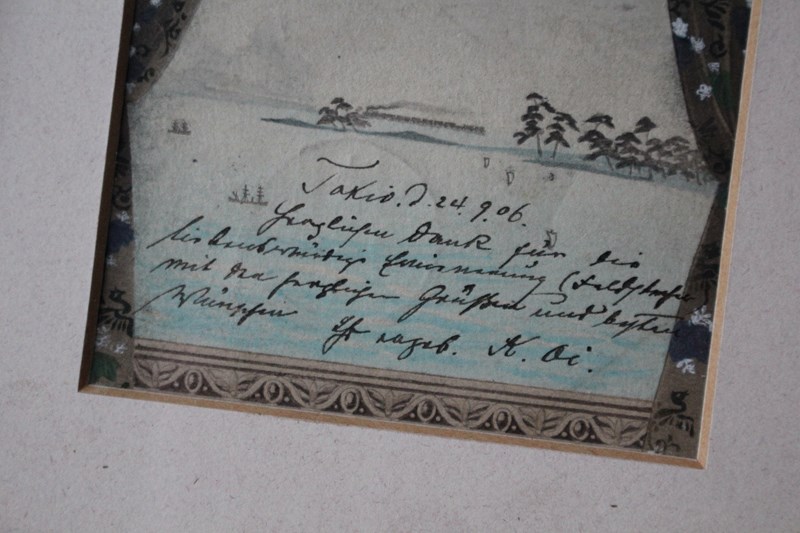 Tokio. d. 24. 9. 06.
Herzlichen Dank für die
liebenswürdige Erinnerung
mit den herzlichen Grüßen und besten
Wünschen
Ihr ergeb. K. Oi.